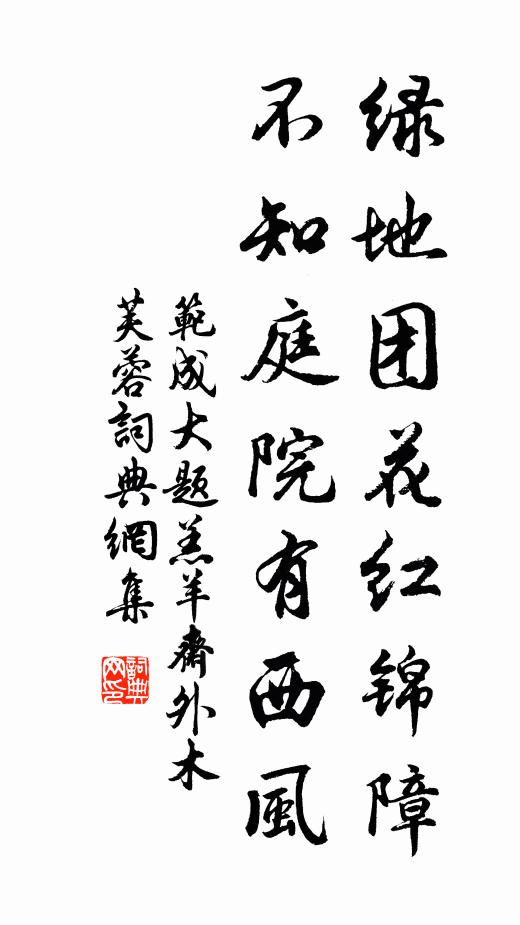 绿地团花红锦障
不知庭院有西風
範成大题羔羊齋外木
芙蓉詞典網集
詞典网印